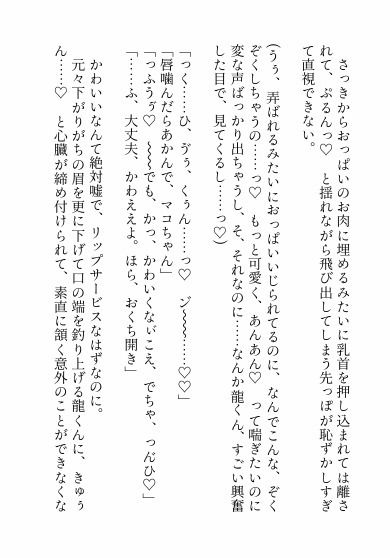 さっきからおっぱいのお肉に埋めるみたいに乳首を押し込まれては離さ
れて、ぷるんっ♡　と揺れながら飛び出してしまう先っぽが恥ずかしすぎ
て直視できない。
(うぅ、弄ばれるみたいにおっぱいいじられてるのに、なんでこんな、ぞく
ぞくしちゃうの……っ♡　もっと可愛く、あんあん♡　って喘ぎたいのに
変な声ばっかり出ちゃうし、そ、それなのに……なんか龍くん、すごい興奮
した目で、見てくるし……っ♡)
「っく……ひ、ゔぅ、くぅん……っ♡　ン゙〜〜……♡♡」
「唇噛んだらあかんで、マコちゃん」
「っふうぅ゙♡　〜〜でも、かっ、かわいくなぃこえ、でちゃ、っん゙ひ♡」
「……ふ、大丈夫、かわええよ。ほら、おくち開き」
かわいいなんて絶対嘘で、リップサービスなはずなのに。
元々下がりがちの眉を更に下げて口の端を釣り上げる龍くんに、きゅぅ
ん……♡　と心臓が締め付けられて、素直に頷く意外のことができなくな